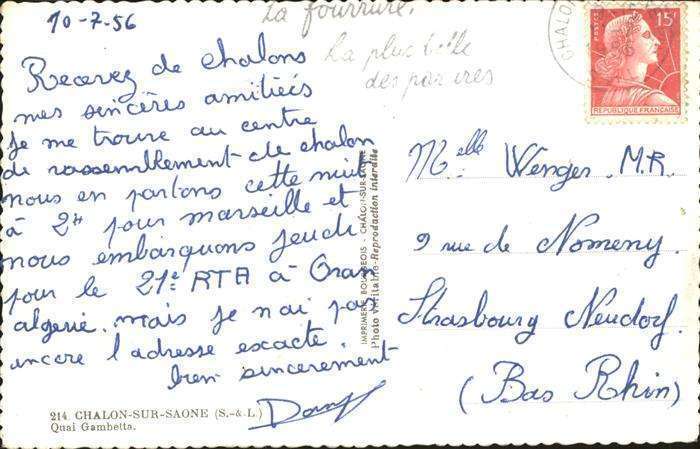 10-7-56
La fourrure,
La plus belle
des parures
CHALON
POSTES
15F
REPUBLIQUE FRANÇAISE
Recevez de chalons
mes sincères amitiées
je me trouve au centre
de rassemblement de chalon
nous en partons cette nuit
à 2H pour marseille et
nous embarquons jeudi
pour le 21e RTA à Oran
algerie. mais je n'ai pas
encore l'adresse exacte.
bien sincerement
IMPRIMERIE BOURGEOIS - CHALON-SUR-SAONE
Photo véritable-Reproduction interdite
Melle Wenges. M.R.
9 rue de Nomeny.
Strasbourg Neudorf.
(Bas Rhin)
214 CHALON-SUR-SAONE (S.-&-L.)
Quai Gambetta.